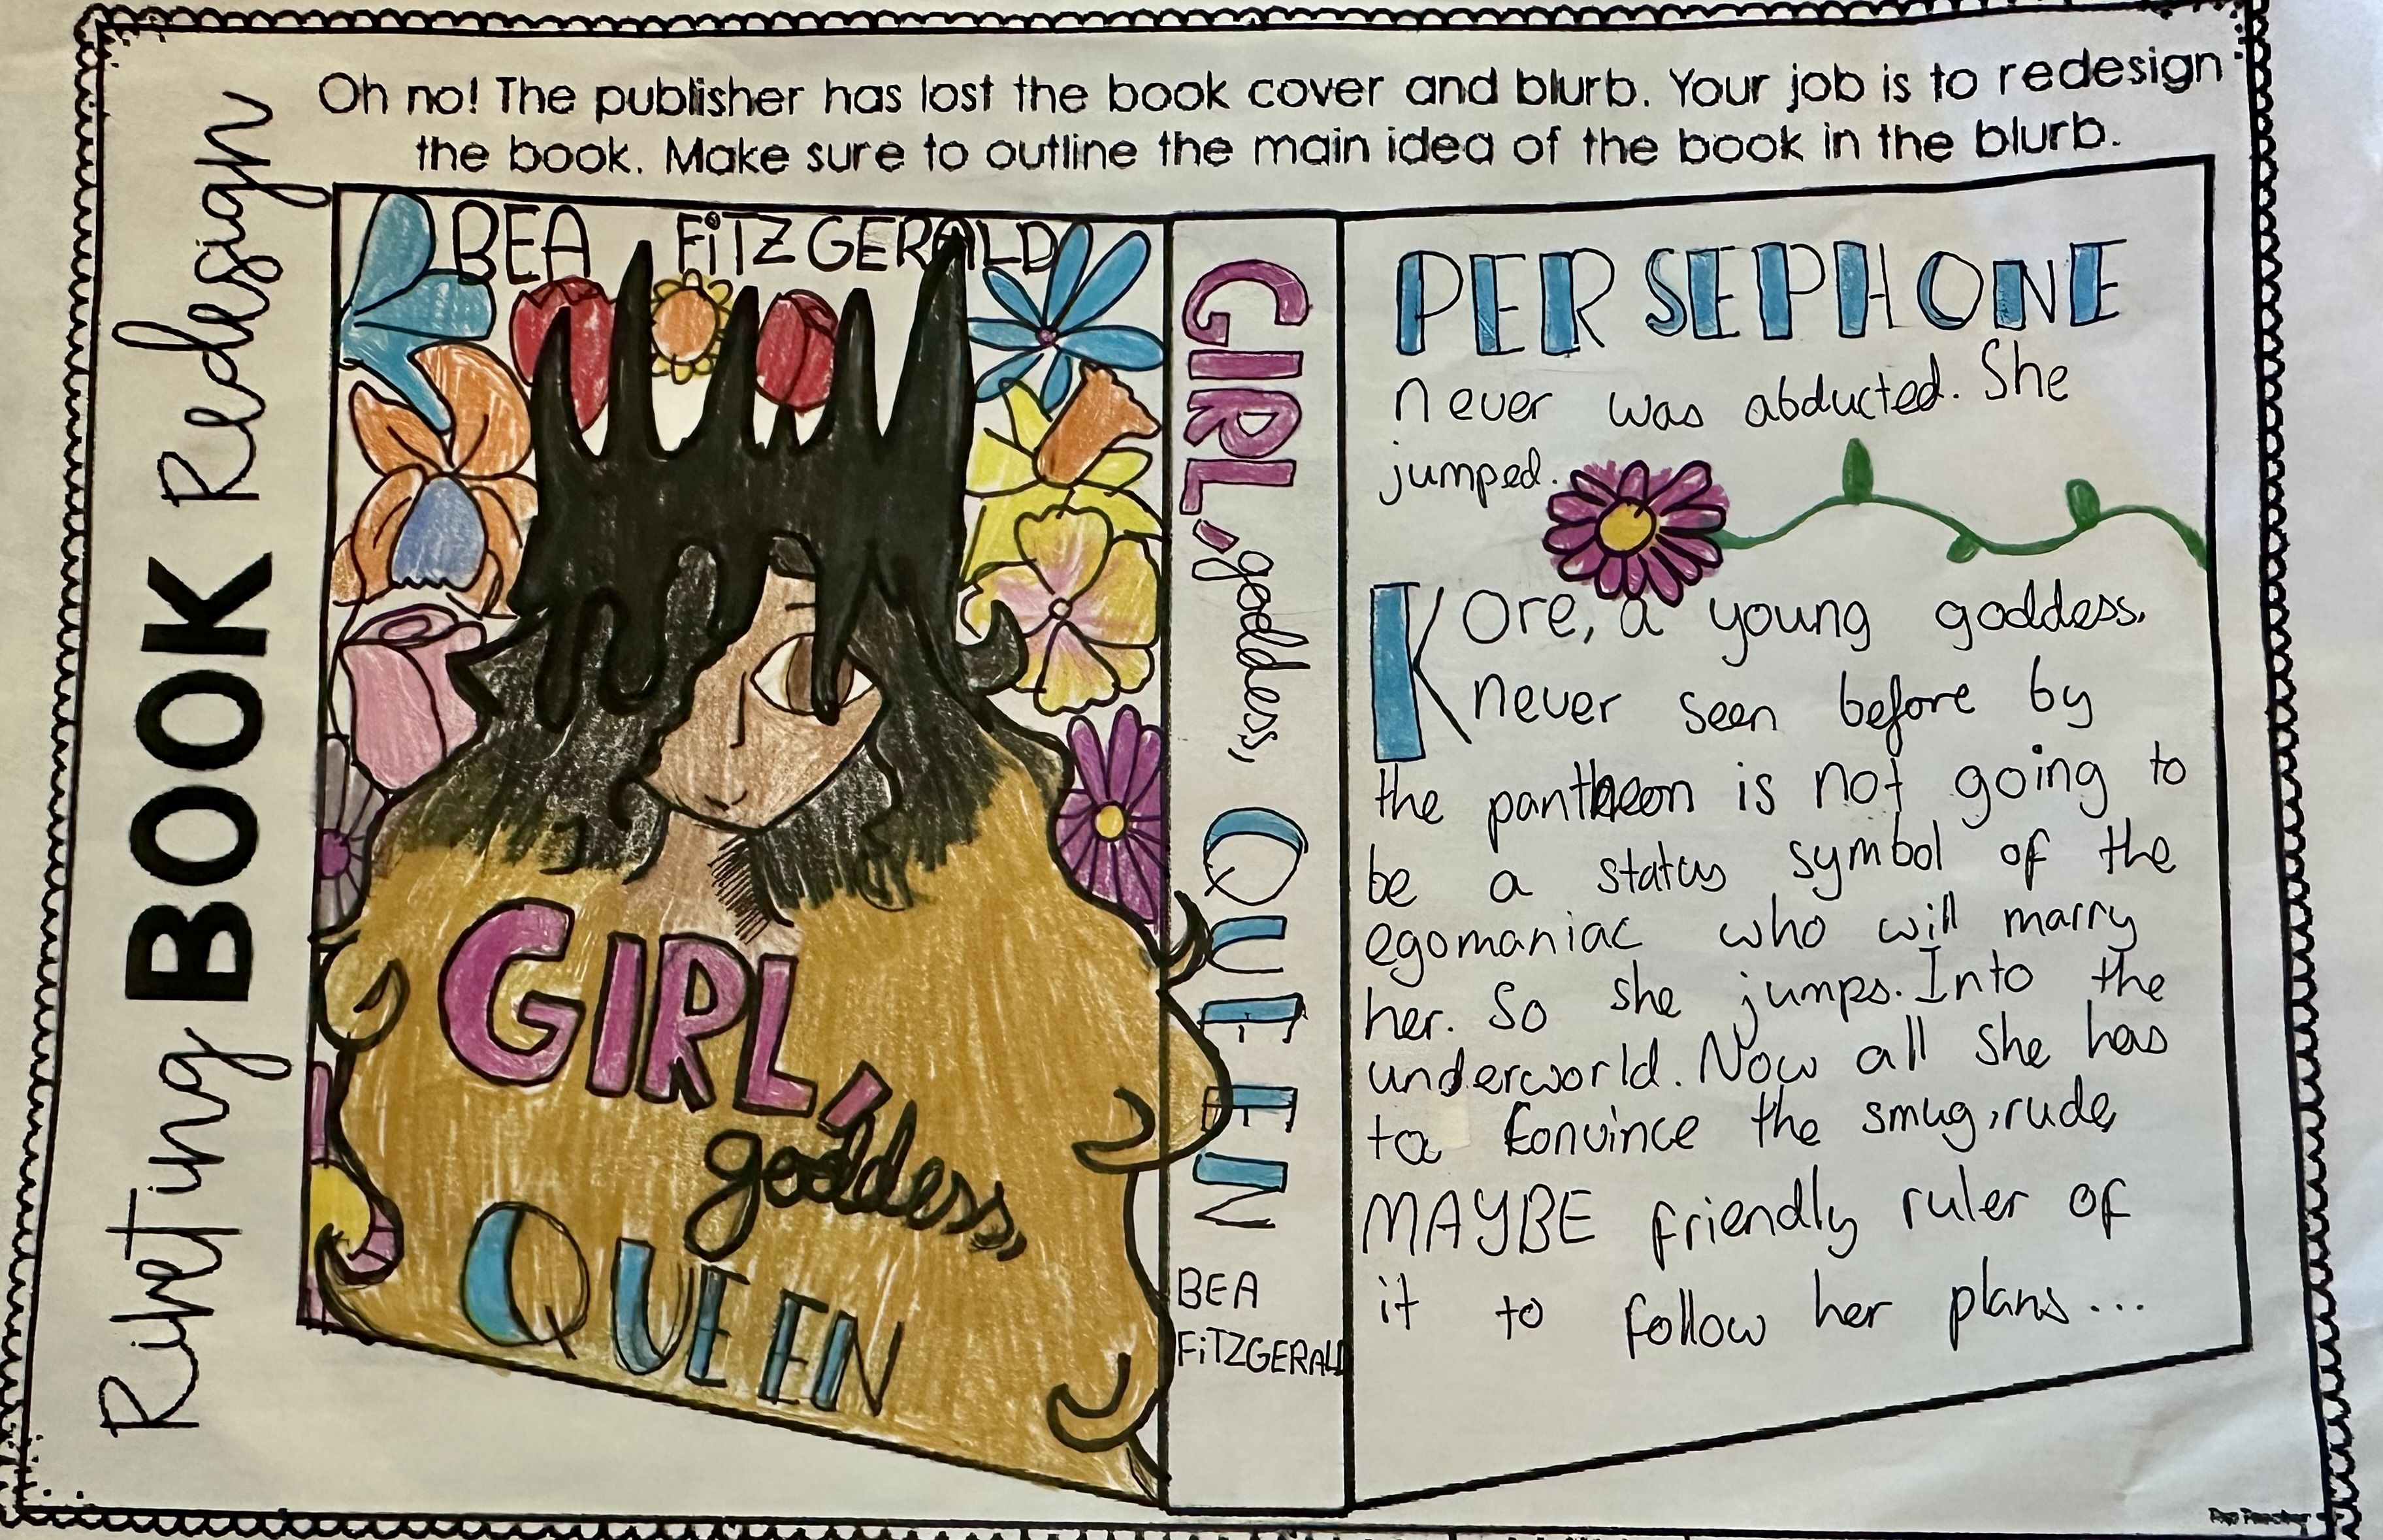 Oh no! The publisher has lost the book cover and blurb. Your job is to redesign
the book. Make sure to outline the main idea of the book in the blurb.
Riveting BOOK Redesign
BEA FiTZGERALD
GIRL,
goddess,
QUEEN
GIRL, goddess, QUEEN
BEA
FiTZGERALD
PERSEPHONE
never was abducted. She
jumped.
Kore, a young goddess,
never seen before by
the pantheon is not going to
be a status symbol of the
egomaniac who will marry
her. So she jumps. Into the
underworld. Now all she has
to convince the smug, rude,
MAYBE friendly ruler of
it to follow her plans...